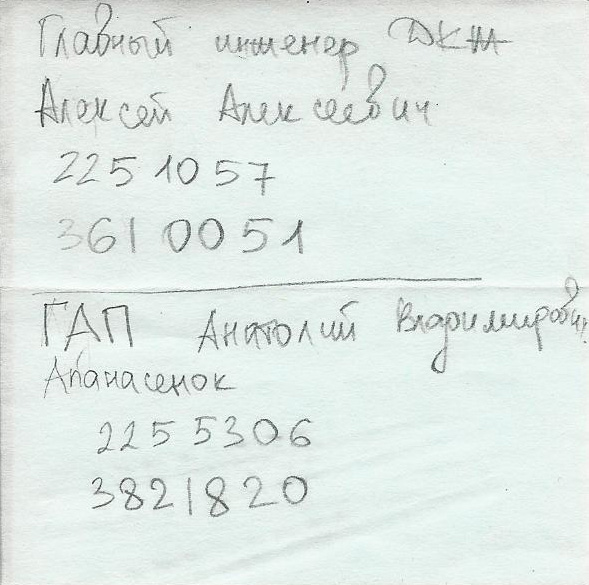 Главный инженер ДКЖ
Алексей Алексеевич
225 10 57
361 00 51
ГАП Анатолий Владимирович
Апанасенок
225 5306
3821820